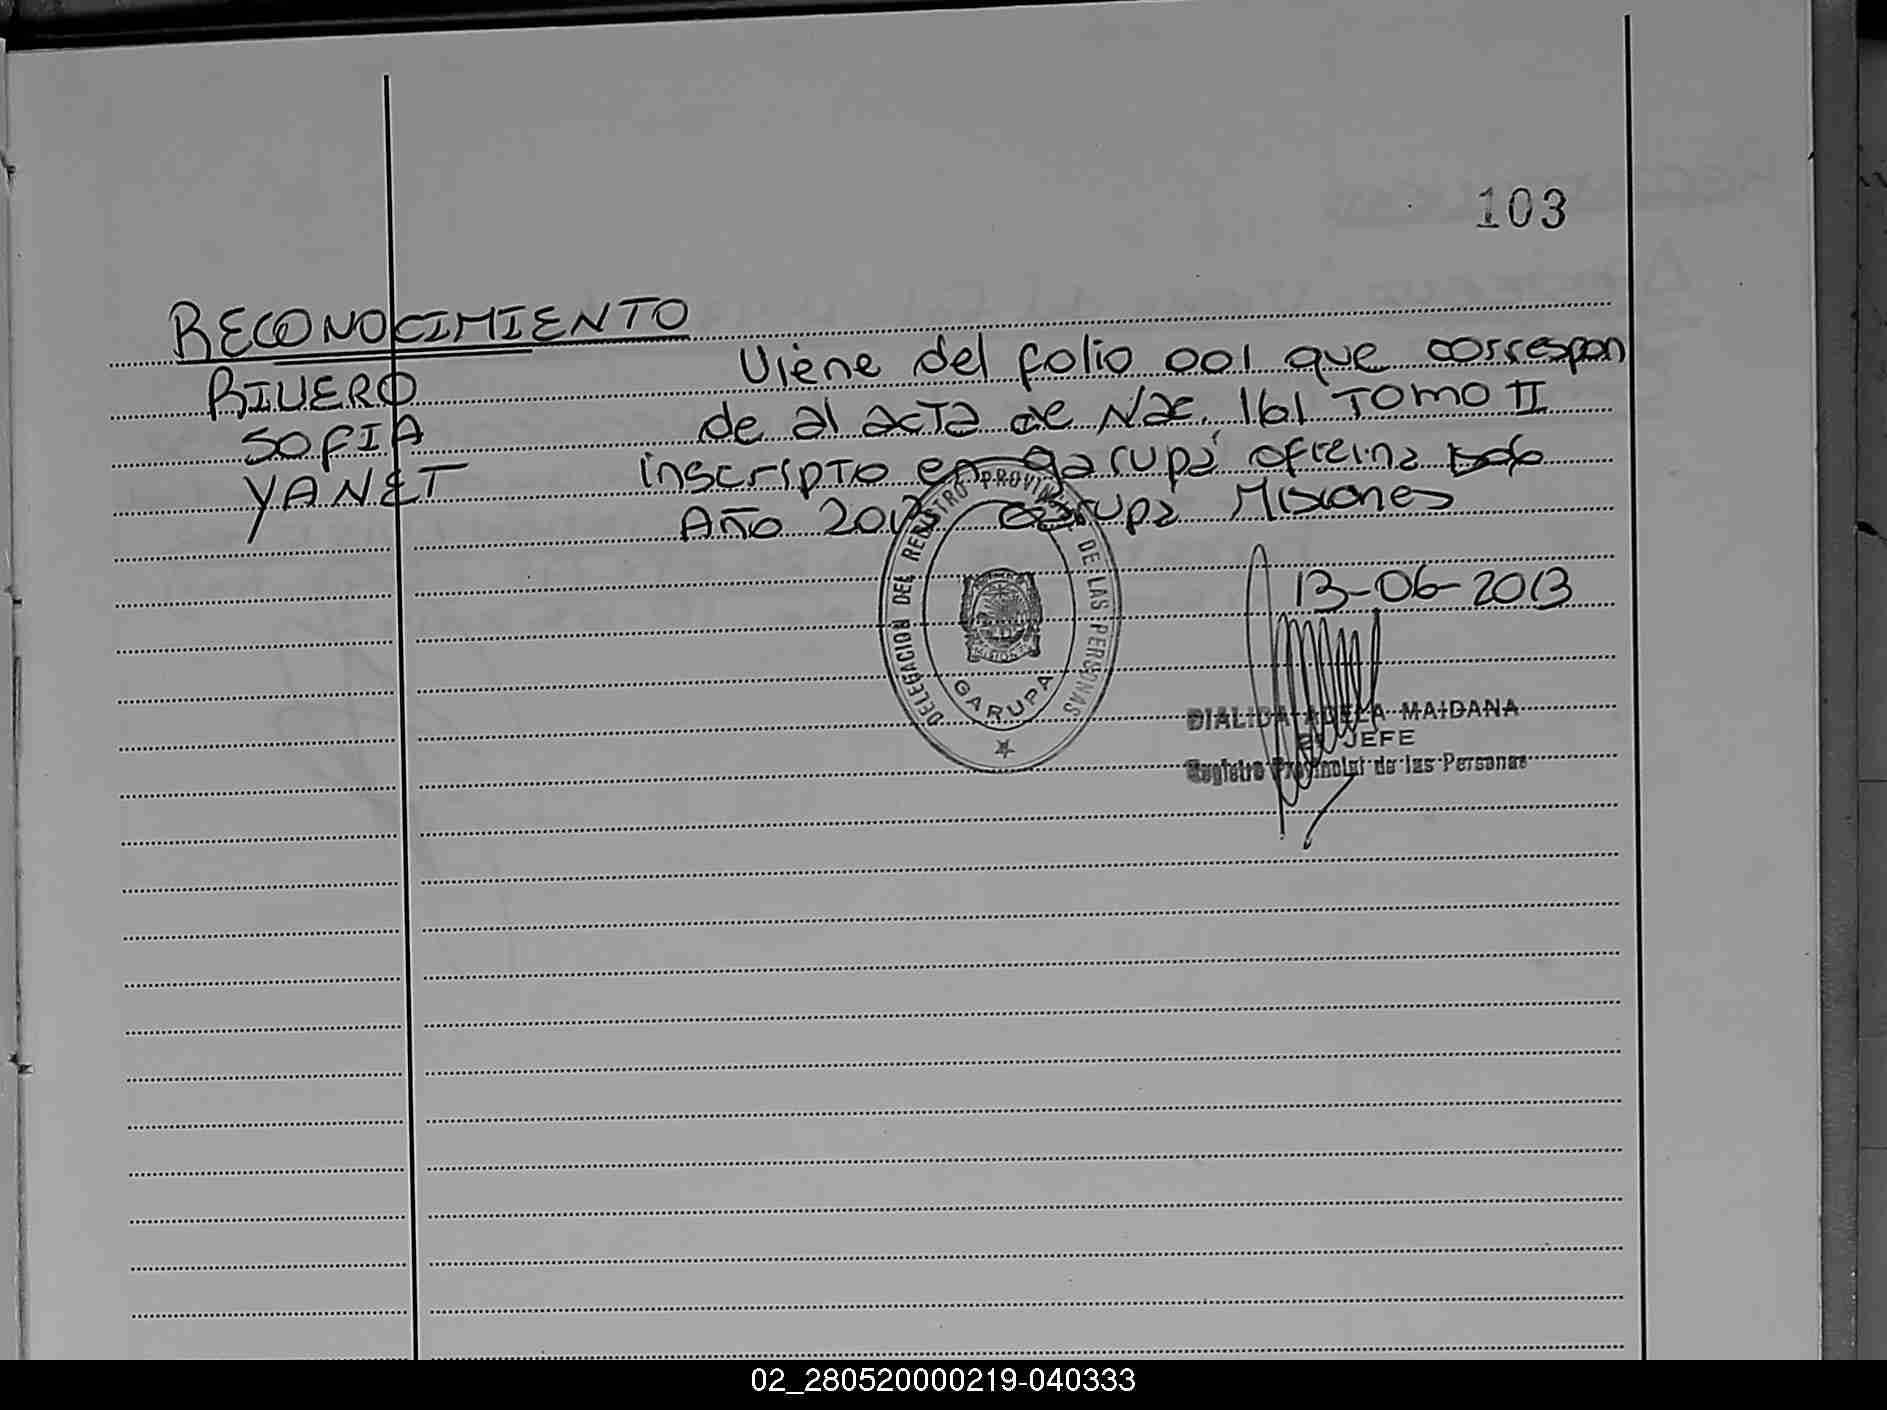 103
RECONOCIMIENTO
RIVERO
SOFIA
YANET
Viene del folio 001 que correspon
de al acta de Nac. 161 TOMO II
inscripto en garupá oficina
AÑO 2013 Garupa Misiones
DELEGACION DEL REGISTRO PROVINCIAL DE LAS PERSONAS
GARUPA
MISIONES
13-06-2013
DIALIDA ADELA MAIDANA
JEFE
Registro Provincial de las Personas
02_280520000219-040333